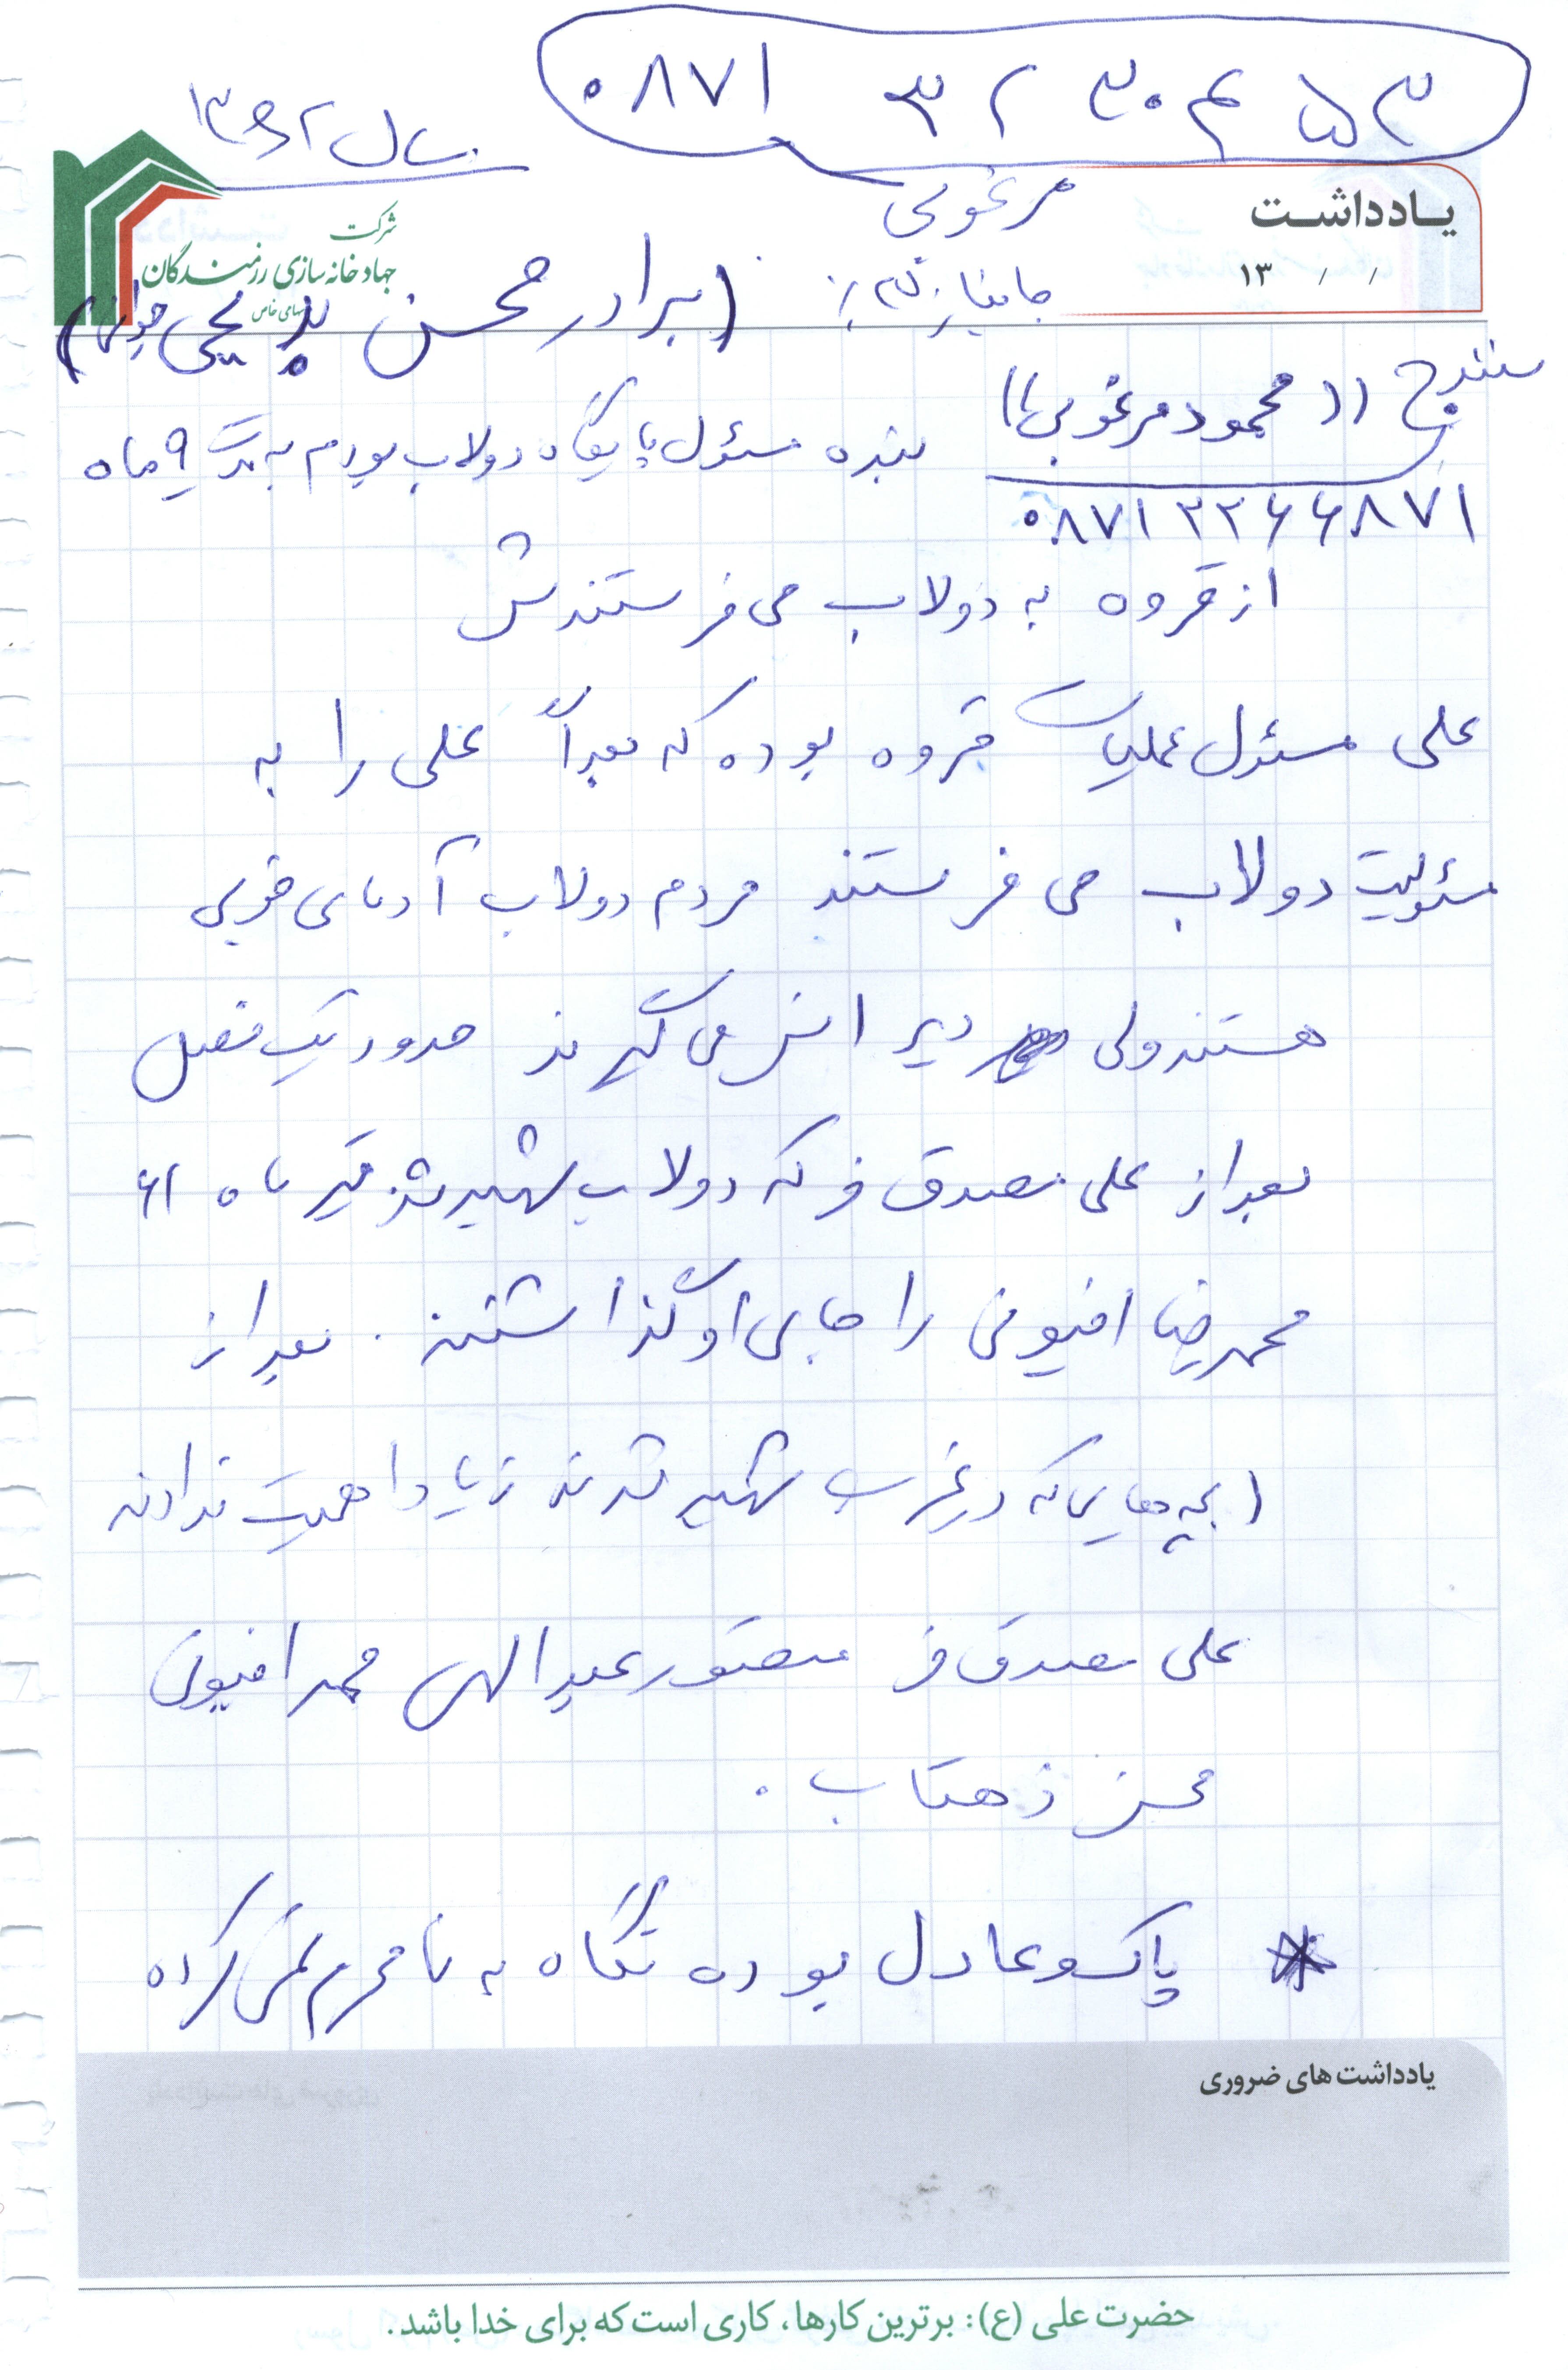 ۰۸۷۱ ۳۲۳۰۴۵۳
سال ۱۳۶۲
مرغوبی
یادداشت
۱۳ / /
شرکت
جهاد خانه سازی رزمندگان
سهامی خاص
جانباز ۲۵٪ (برادر محسن یحیی جوانی)
سنندج ((محمود مرغوبی)) بنده مسئول پایگاه دولاب بودم به مدت ۹ ماه
۰۸۷۱ ۳۲۶۶۸۷۱
از قروه به دولاب می فرستندش
علی مسئول عملیات قروه بوده که بعداً علی را به
مسئولیت دولاب می فرستند مردم دولاب آدمای خوبی
هستند ولی دیر انس می گیرند حدود یک فصل
بعد از علی مصدق فر که دولاب شهید شد تیر ماه ۶۱
محمدرضا افیونی را جای او گذاشتند. بعد از
(بچه هایی که در غرب شهید شدند زیاد اهمیت ندادند
علی مصدق فر منصور عبدالهی محمد افیونی
محسن ذهتاب.
* پاک و عادل بوده نگاه به نامحرم نمی کرده
یادداشت های ضروری
حضرت علی (ع): برترین کارها، کاری است که برای خدا باشد.